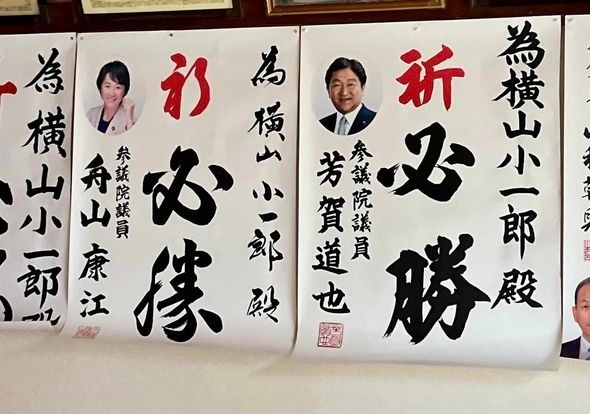 為横山小一郎殿
祈必勝
参議院議員
芳賀道也
為横山小一郎殿
祈必勝
参議院議員
舟山康江
為横山小一郎殿